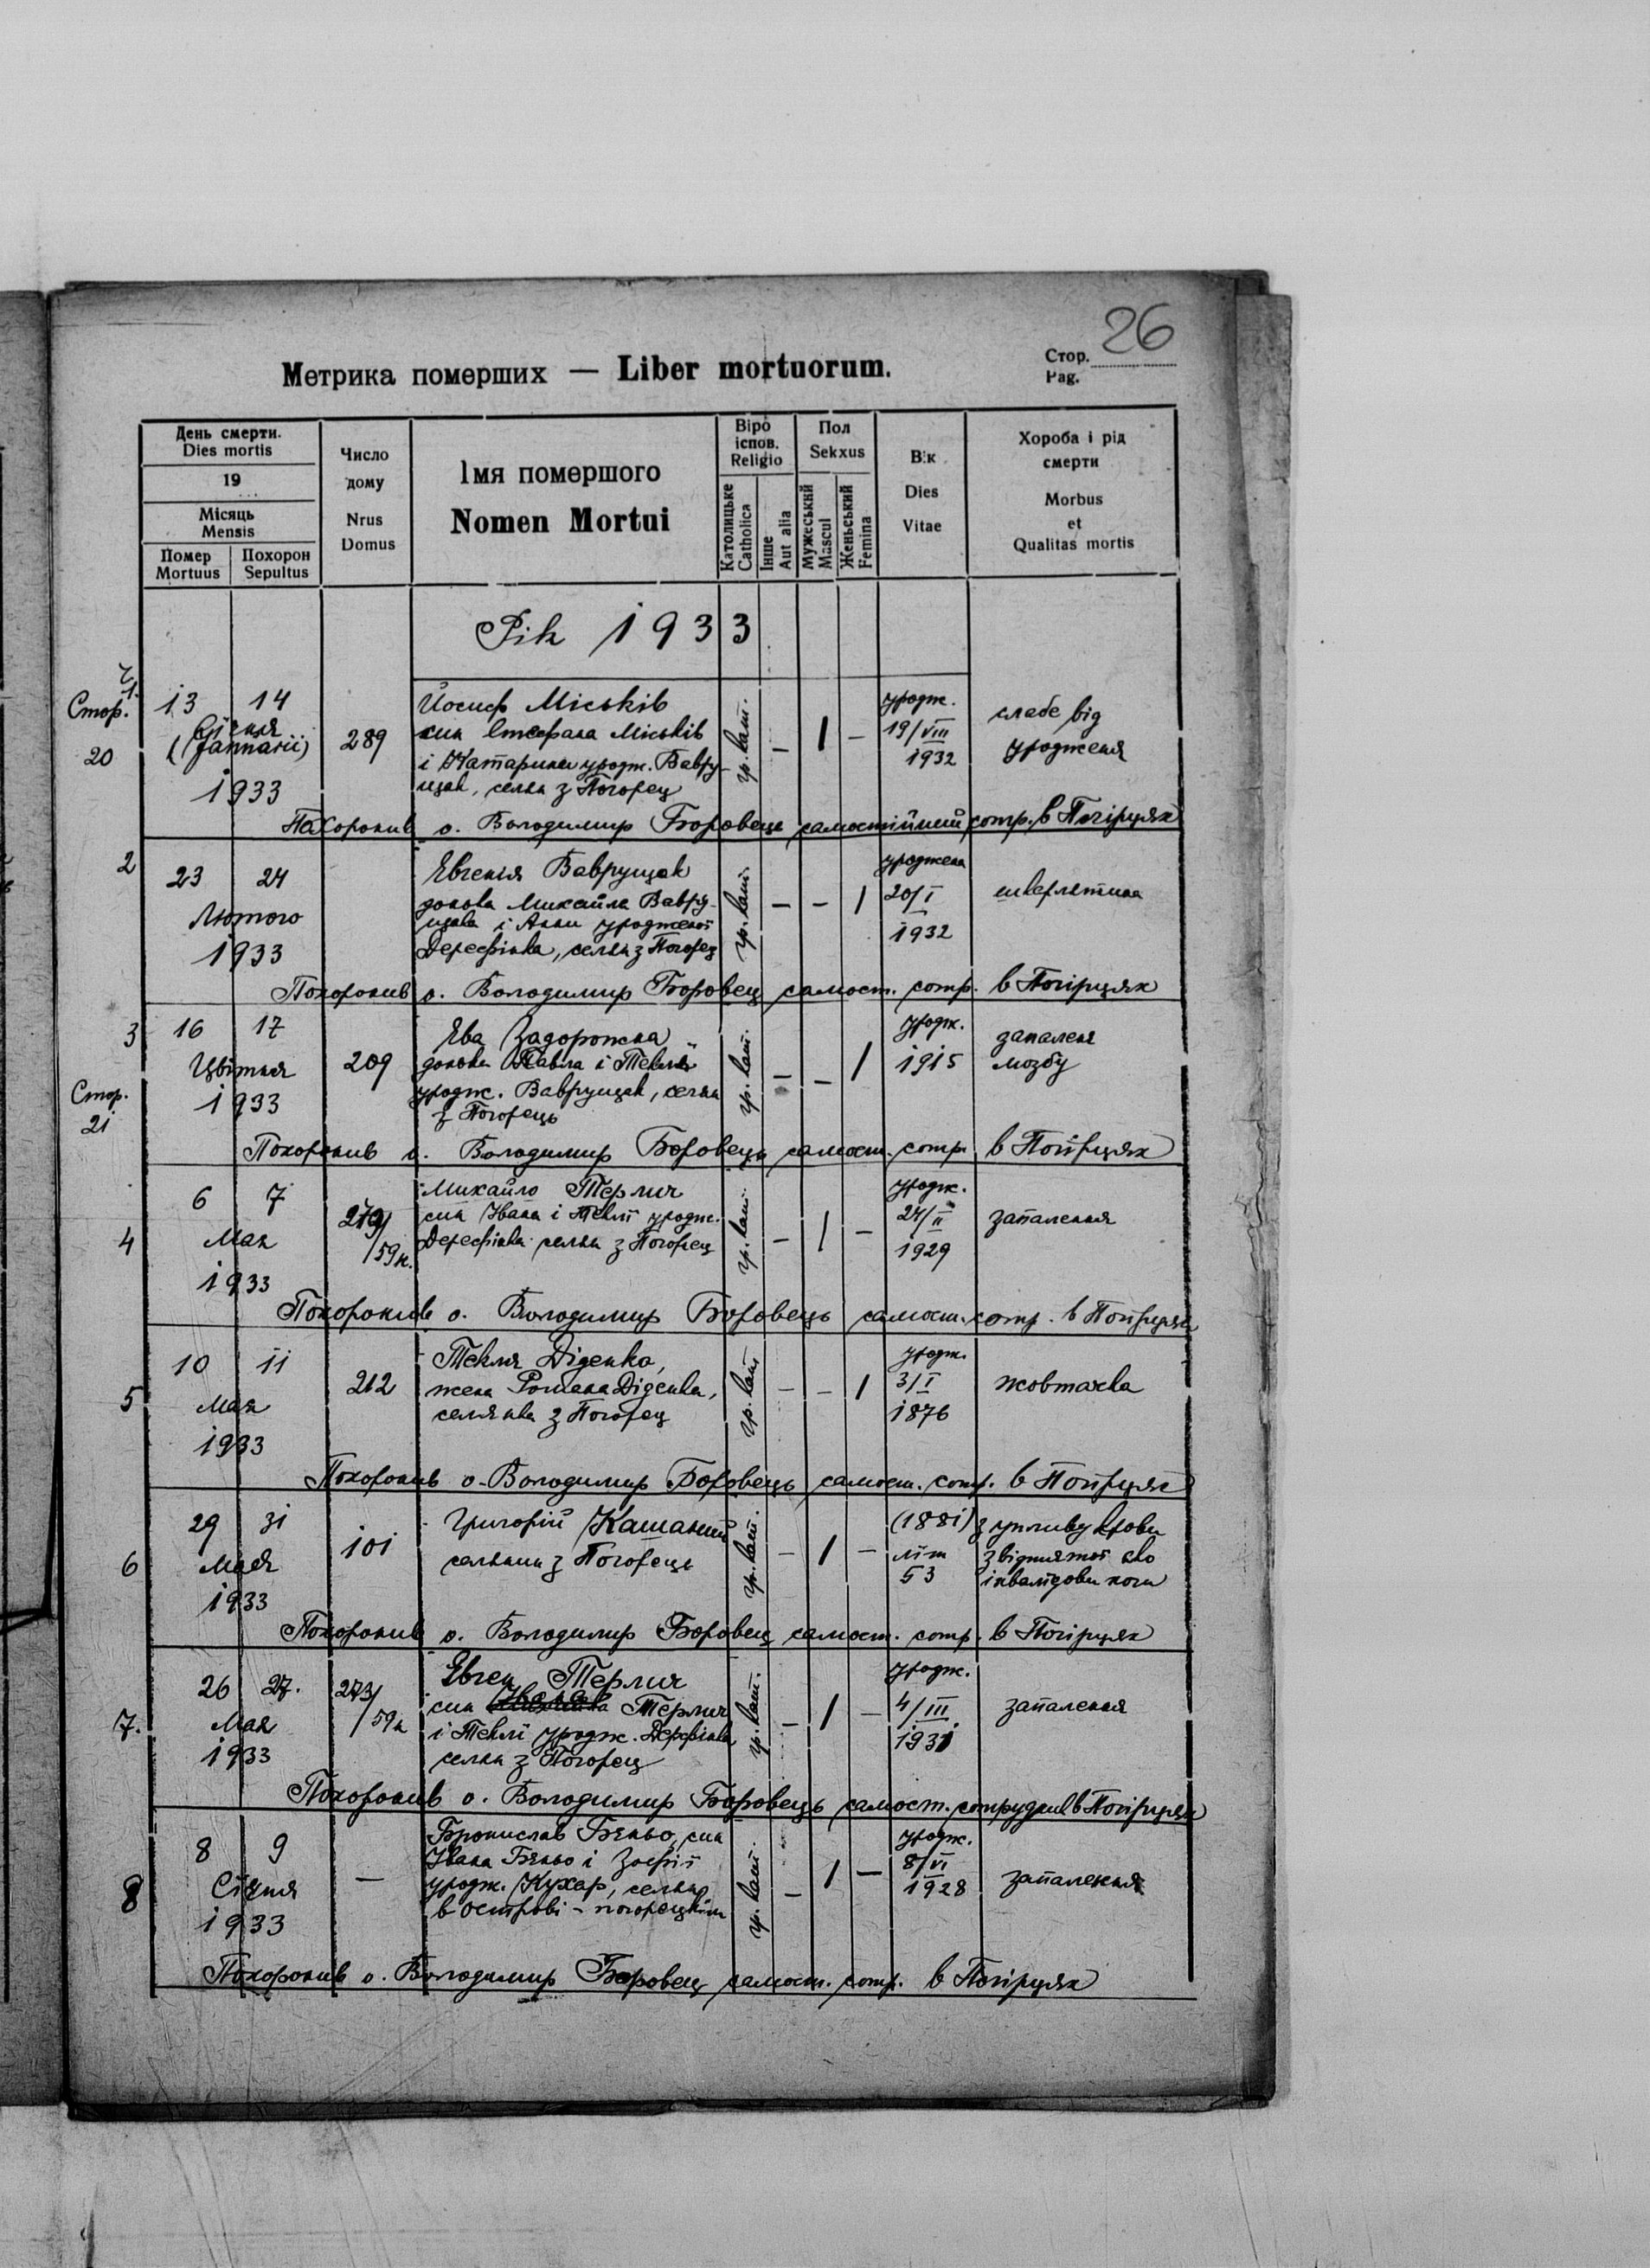 26
Стор.
Pag.
Метрика померших — Liber mortuorum.
День смерти.
Dies mortis
19
Місяць
Mensis
Помер
Mortuus
Похорон
Sepultus
Число
дому
Nrus
Domus
Імя помершого
Nomen Mortui
Віро
іспов.
Religio
Католицьке
Catholica
Інше
Aut alia
Пол
Sekxus
Мужеський
Mascul
Женьський
Femina
Вік
Dies
Vitae
Хороба і рід
смерти
Morbus
et
Qualitas mortis
Рік 1933
1.
Стор.
20
13 14
Січня
(Jannarii)
1933
289
Йосиф Міськів
син Стефана Міськів
і Катарини уродж. Вавру-
щак, селян з Погорец
гр. кат.
— 1 —
уродж.
19/VIII
1932
слабе від
уродженя
Похоронив о. Володимир Боровець самостійний сотр. в Погірцях
2
23 24
Лютого
1933
Евгенія Ваврущак
донька Михайла Вавру-
щака і Анни уродженої
Дерефінка, селян з Погорец
гр. кат.
— — 1
уроджена
20/I
1932
шкарлятина
Похоронив о. Володимир Боровец самост. сотр. в Погірцях
3
Стор.
21
16 17
Цвітня
1933
209
Ева Задорожна
донька Павла і Теклі
уродж. Ваврущак, селян
з Погорець
гр. кат.
— — 1
уродж.
1915
запаленя
мозку
Похоронив о. Володимир Боровець самост. сотр. в Погірцях
4
6 7
Мая
1933
273/
/59н.
Михайло Терлич
син Івана і Теклі уродж.
Дерефінка селян з Погорец
гр. кат.
— 1 —
уродж.
24/II
1929
запалення
Похоронив о. Володимир Боровець самост. сотр. в Погірцях
5
10 11
Мая
1933
212
Текля Діденко,
жена Романа Діденка,
селянка з Погорец
гр. кат
— — 1
уродж.
3/I
1876
жовтачка
Похоронив о. Володимир Боровець самост. сотр. в Погірцях
6
29 31
Мая
1933
101
Григорій
селянин з Погорець
гр. кат.
— 1 —
(1881)
літ
53
з упливу крови
з віднятої
інвалідови ноги
Похоронив о. Володимир Боровец самост. сотр. в Погірцях
7.
26 27.
Мая
1933
273/
/59н
Евген Терлич
син Івана Терлич
і Теклі уродж. Дерефінка
селян з Погорец
гр. кат.
— 1 —
уродж.
4/III
1931
запалення
Похоронив о. Володимир Боровець самост. сотрудник в Погірцях
8
8 9
Січня
1933
—
Бронислав Беньо, син
Івана Беньо і Зофії
уродж. Кухар, селян
в Острові - погорецкім
гр. кат.
— 1 —
уродж.
8/VI
1928
запалення
Похоронив о. Володимир Боровец самост. сотр. в Погірцях